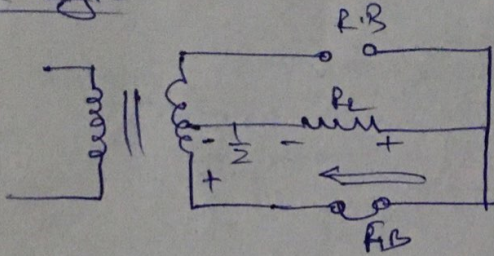 R.B
RL
- 1/2 - +
+
F.B